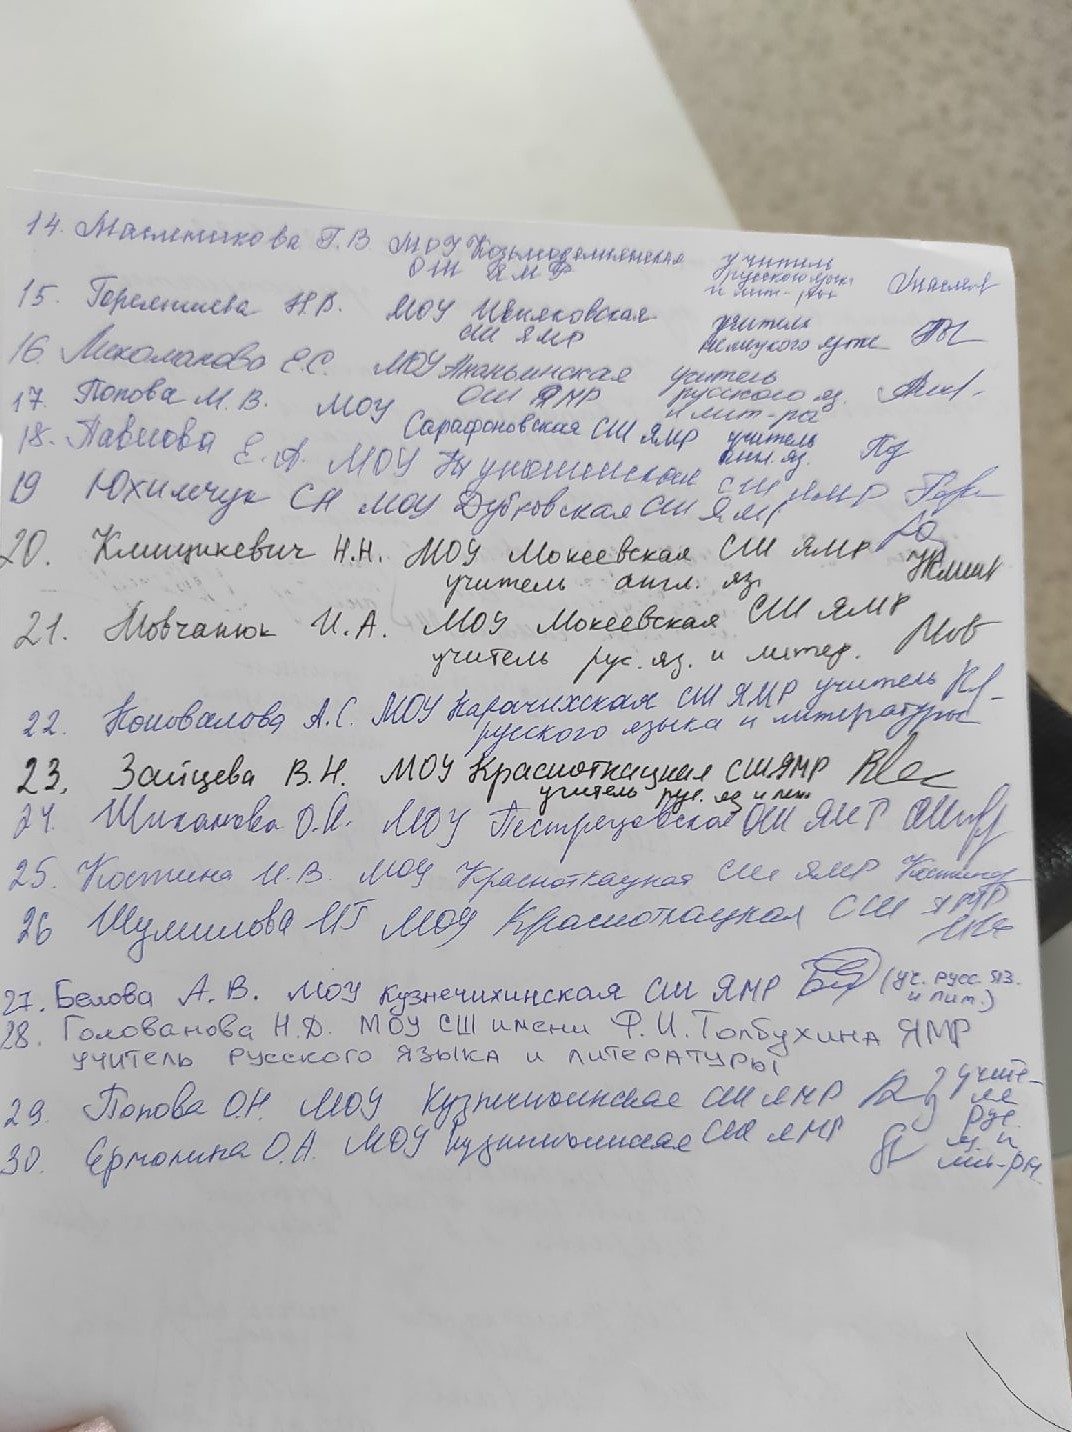 14. Масленикова Г.В. МОУ Козьмодемьянская учитель
ОШ ЯМР русского языка
и лит-ры
15. Н.В. МОУ Ивняковская учитель
СШ ЯМР немецкого языка
16. Е.С. МОУ Ананьинская учитель
ОШ ЯМР русского яз.
и лит-ра
17. Попова М.В. МОУ Сарафоновская СШ ЯМР учитель
англ. яз.
18. Павлова Е.А. МОУ СШ ЯМР
19 Юхимчук СН МОУ Дубковская СШ ЯМР
20. Климцикевич Н.Н. МОУ Мокеевская СШ ЯМР
учитель англ. яз.
21. Мовчанюк И.А. МОУ Мокеевская СШ ЯМР
учитель рус. яз. и литер.
22. Коновалова А.С. МОУ Карачихская СШ ЯМР учитель
русского языка и литературы
23. Зайцева В.Н. МОУ Красноткацкая СШ ЯМР
учитель рус. яз и лит
24. МОУ Пестрецовская ОШ ЯМР
25. Костина И.В. МОУ Красноткацкая СШ ЯМР
26 Шумилова МОУ Красноткацкая СШ ЯМР
27. Белова А.В. МОУ Кузнечихинская СШ ЯМР (уч. русс. яз.
и лит.)
28. Голованова Н.Д. МОУ СШ имени Ф.И. Толбухина ЯМР
учитель русского языка и литературы
29. Попова О.Н. МОУ Кузнечихинская СШ ЯМР учите-
ля
рус.
30. Ермолина О.А. МОУ Кузнечихинская СШ ЯМР я и
лит-ры